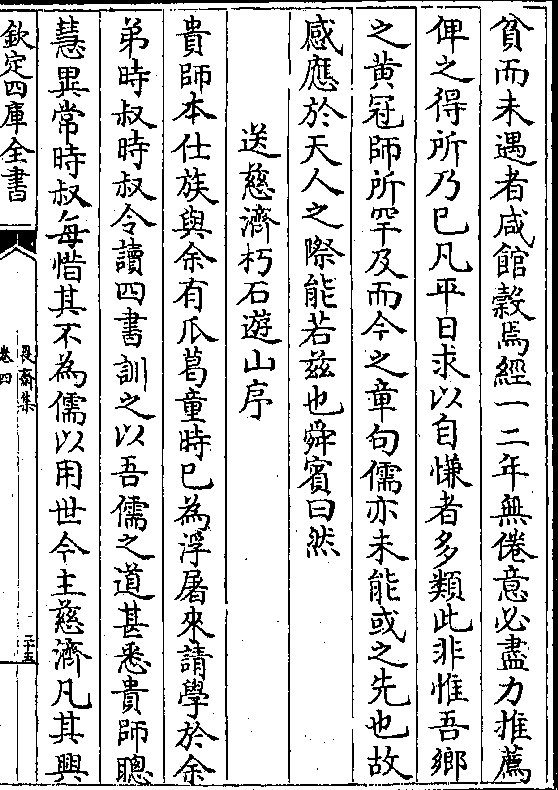 貧而未遇者咸館榖焉經一二年無倦意必盡力推薦
俾之得所乃已凡平日求以自慊者多類此非惟吾鄉
之黄冠師所罕及而今之章句儒亦未能或之先也故
感應於天人之際能若兹也舜賓曰然
送慈濟朽石遊山序
貴師本仕族與余有瓜葛童時已為浮屠來請學於余
弟時叔時叔令讀四書訓之以吾儒之道甚悉貴師聰
慧異常時叔每惜其不為儒以用世今主慈濟凡其興
欽定四庫全書
畏齋集
卷四
二十五